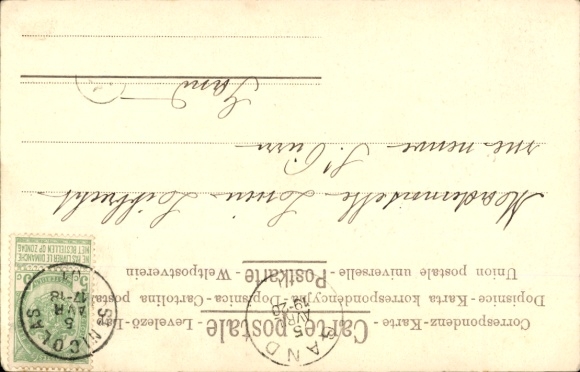 Correspondenz-Karte - Levelező-Lap
Carte postale
Dopisnice - Karta korrespondencyjna - Dopisnica - Cartolina postale
Union postale universelle - Weltpostverein
Postkarte
Mademoiselle
rue neuve St Pierre
Gand
NE PAS LIVRER LE DIMANCHE
NIET BESTELLEN OP ZONDAG
ST NICOLAS
5
AVR
17-18
01
GAND
5
AVRIL
19-20